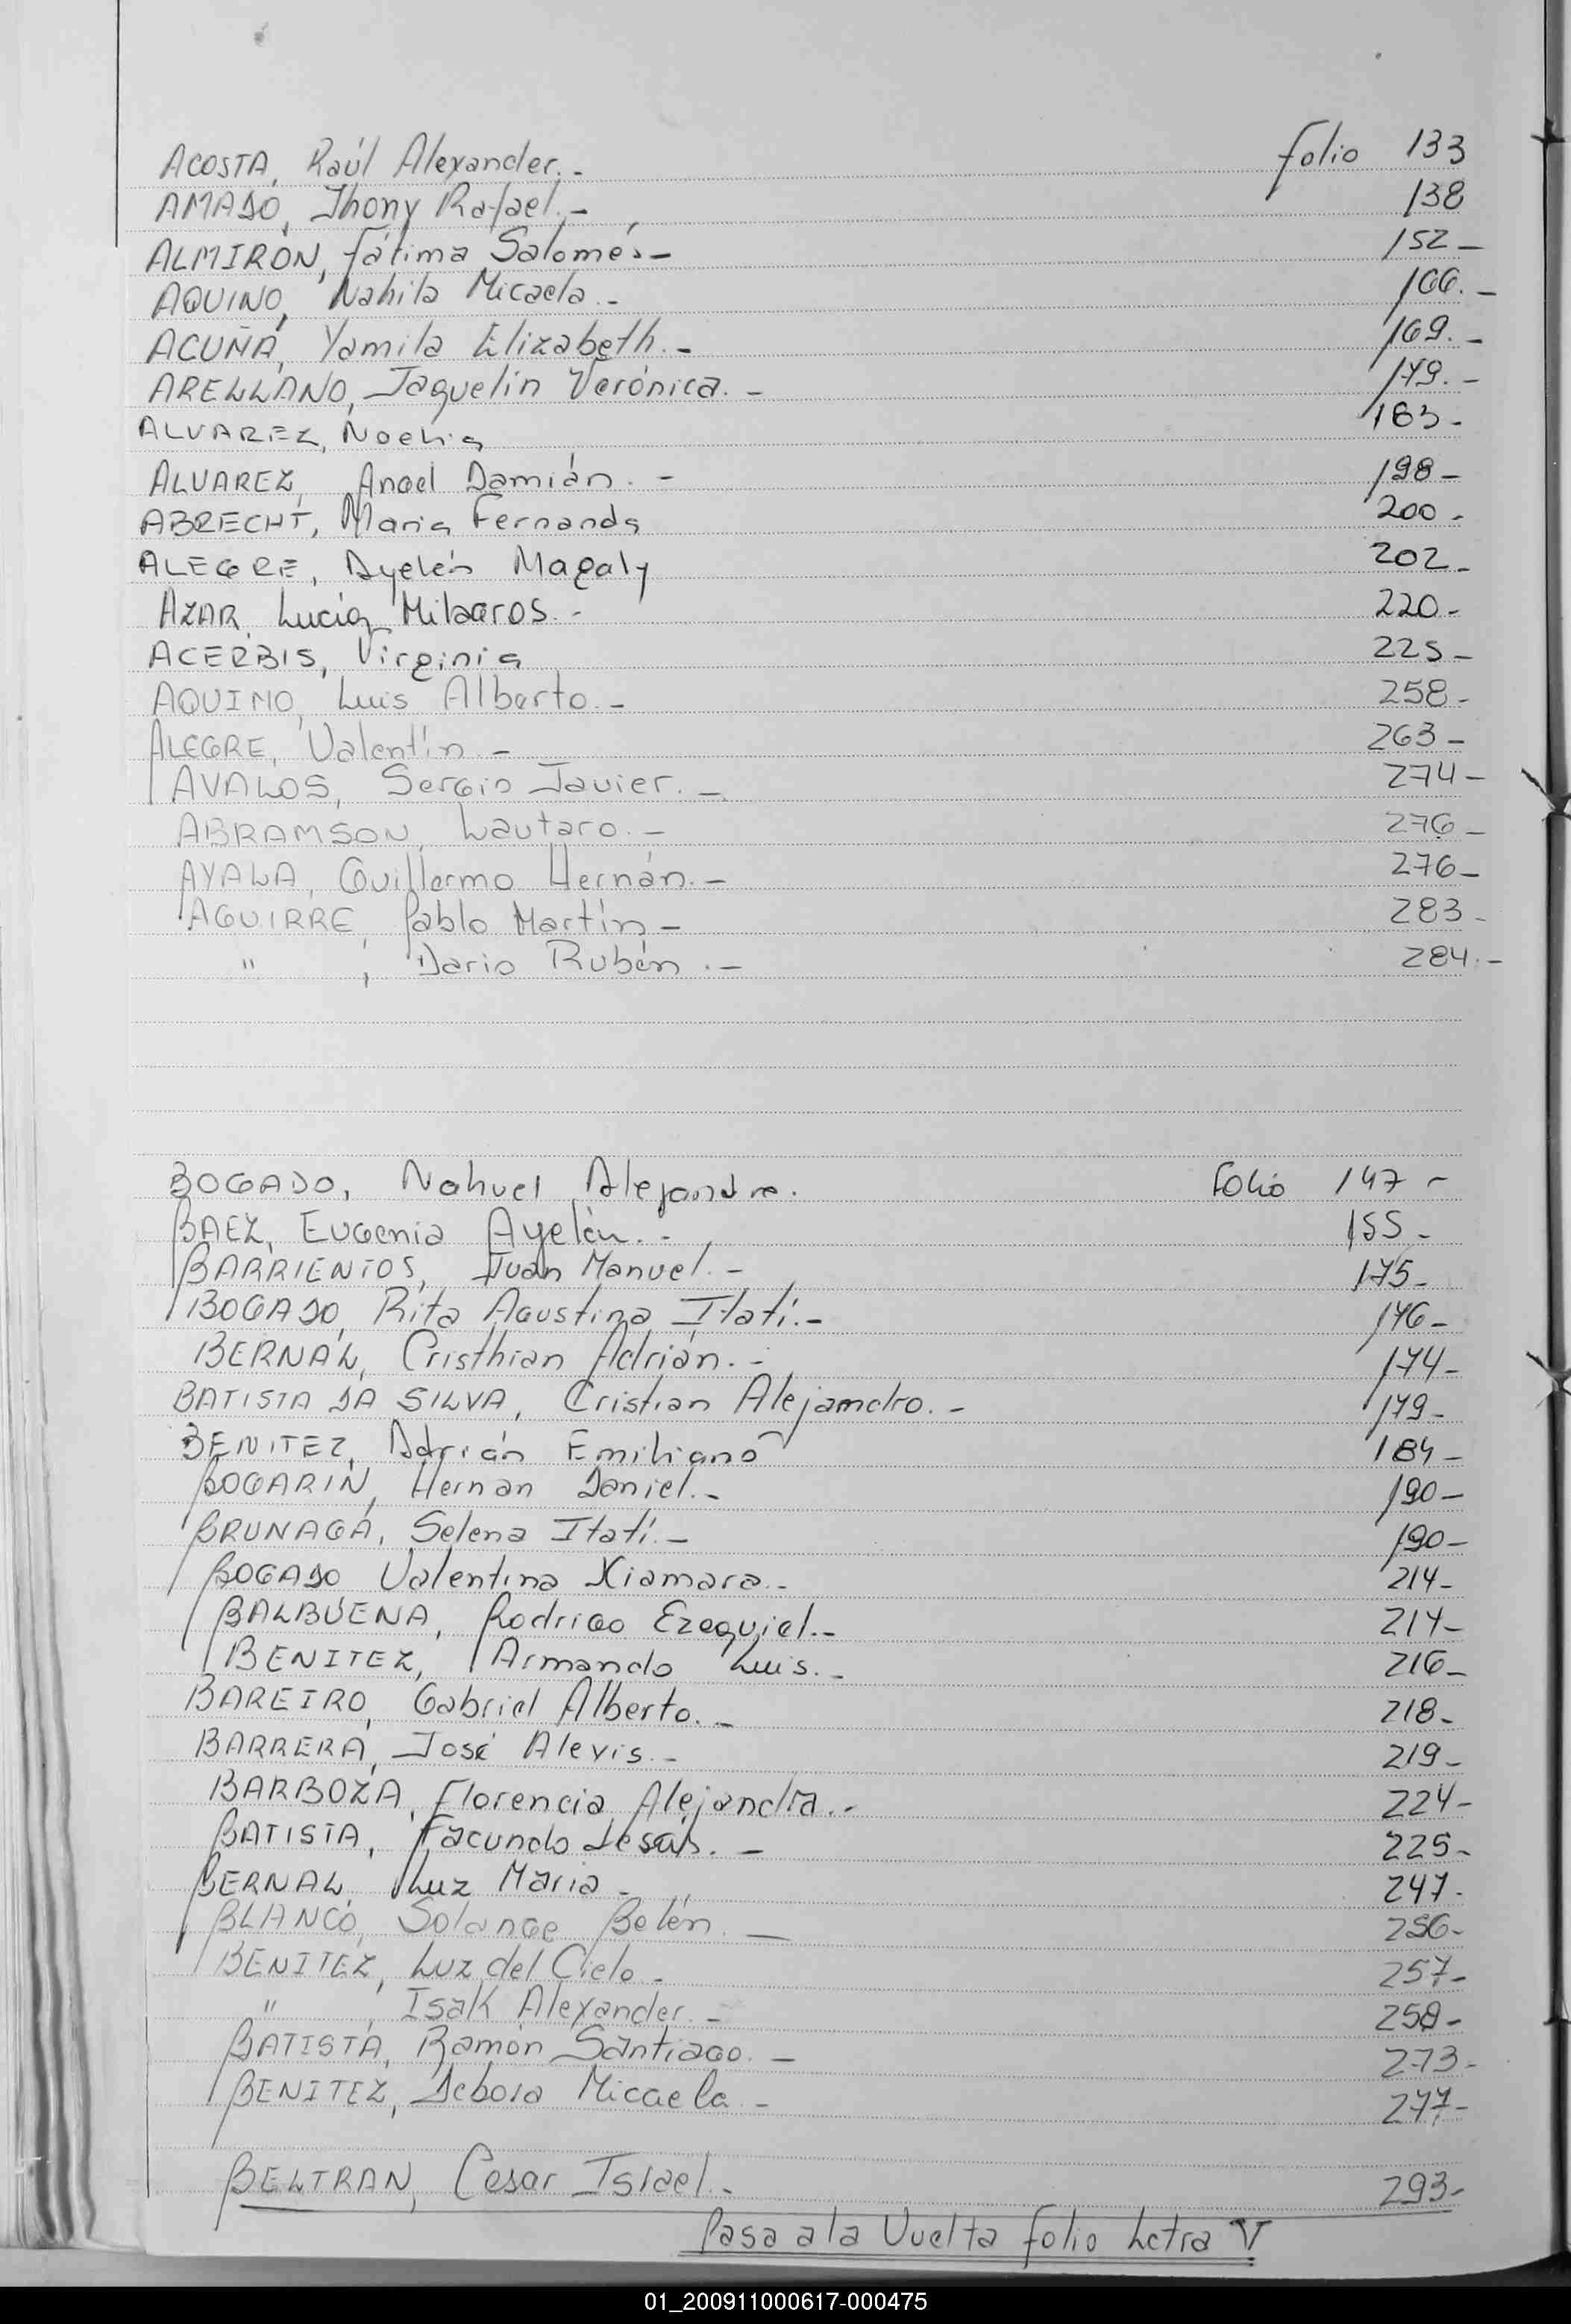 ACOSTA, Raúl Alexander.- folio 133
AMADO, Jhony Rafael.- 138
ALMIRÓN, Fátima Salomé.- 152-
AQUINO, Nahila Micaela.- 166.-
ACUÑA, Yamila Elizabeth.- 169.-
ARELLANO, Jaquelin Verónica.- 179.-
ALVAREZ, Noelia 183-
ALVAREZ, Angel Damián.- 198-
ABRECHT, Maria Fernanda 200-
ALEGRE, Ayelén Magaly 202-
AZAR, Lucía Milagros.- 220-
ACERBIS, Virginia 225-
AQUINO, Luis Alberto.- 258-
ALEGRE, Valentín.- 263-
AVALOS, Sergio Javier.- 274-
ABRAMSON, Lautaro.- 276-
AYALA, Guillermo Hernán.- 276-
AGUIRRE, Pablo Martín- 283-
" , Dario Rubén.- 284.-
BOGADO, Nahuel Alejandro. Folio 147-
BAEZ, Eugenia Ayelén.- 155-
BARRIENTOS, Juan Manuel.- 175-
BOGADO, Rita Agustina Itatí.- 176-
BERNAL, Cristhian Adrián.- 174-
BATISTA DA SILVA, Cristian Alejandro.- 179-
BENITEZ, Adrián Emiliano 184-
BOGARIN, Hernan Daniel.- 190-
BRUNAGA, Selena Itatí.- 190-
BOGADO Valentina Xiamara.- 214-
BALBUENA, Rodrigo Ezequiel.- 214-
BENITEZ, Armando Luis.- 216-
BAREIRO, Gabriel Alberto.- 218-
BARRERA, José Alexis.- 219-
BARBOZA, Florencia Alejandra.- 224-
BATISTA, Facundo Jesús.- 225-
BERNAL, Luz Maria- 247-
BLANCO, Solange Belén.- 256-
BENITEZ, Luz del Cielo.- 257-
" , Isak Alexander.- 258-
BATISTA, Ramón Santiago.- 273-
BENITEZ, Debora Micaela- 277-
BELTRAN, Cesar Israel.- 293-
Pasa a la Vuelta folio Letra V
01_200911000617-000475